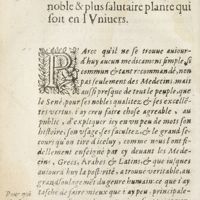 noble & plus salutaire plante qui
soit en l'Vniuers.
PArce qu'il ne se trouue auiour-
d'huy aucun medicament simple si
commun & tant recommandé, non
pas seulement des Medecins mais
aussi presque de tout le peuple, que
le Sené, pour ses nobles qualitez, & ses excelle-
tes vertus. i'ay creu faire chose agreable, au
public, d'expliquer icy en vn peu de mots son
histoire, son vsage, ses facultez, & le grand se-
cours qu'on en tire
comme nous l'ont
fidellement enseigné par cy deuant les Mede-
cins, Grecs, Arabes & Latins, & que iusques
auiourd'huy la posterité, a trouué veritable, au
grand soulagement du genre humain: ce que i'ay
tasché de faire d'autant mieux que i'ay peu, principale-
Pour quoy